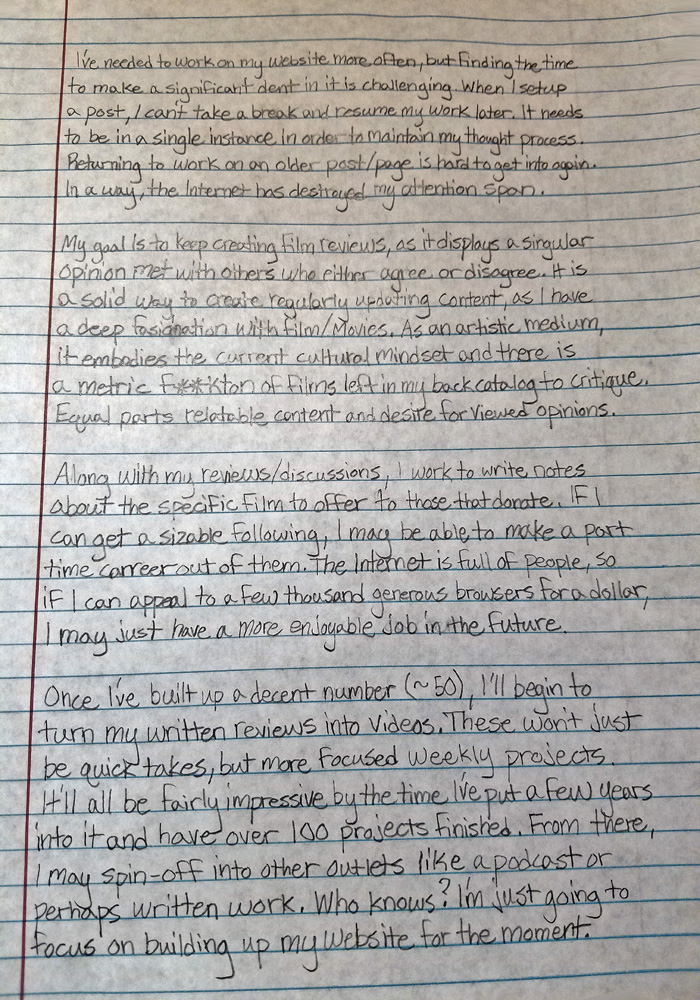 I've needed to work on my website more often, but finding the time
to make a significant dent in it is challenging. When I setup
a post, I can't take a break and resume my work later. It needs
to be in a single instance in order to maintain my thought process.
Returning to work on an older post/page is hard to get into again.
In a way, the Internet has destroyed my attention span.
My goal is to keep creating film reviews, as it displays a singular
opinion met with others who either agree or disagree. It is
a solid way to create regularly updating content, as I have
a deep fasination with film/Movies. As an artistic medium,
it embodies the current cultural mindset and there is
a metric f**kton of films left in my back catalog to critique.
Equal parts relatable content and desire for viewed opinions.
Along with my reviews/discussions, I work to write notes
about the specific film to offer to those that donate. If I
can get a sizable following, I may be able to make a part
time carreer out of them. The Internet is full of people, so
if I can appeal to a few thousand generous browsers for a dollar,
I may just have a more enjoyable job in the future.
Once I've built up a decent number (~50), I'll begin to
turn my written reviews into videos. These won't just
be quick takes, but more focused weekly projects.
It'll all be fairly impressive by the time I've put a few years
into it and have over 100 projects finished. From there,
I may spin-off into other outlets like a podcast or
perhaps written work. Who knows? I'm just going to
focus on building up my website for the moment.